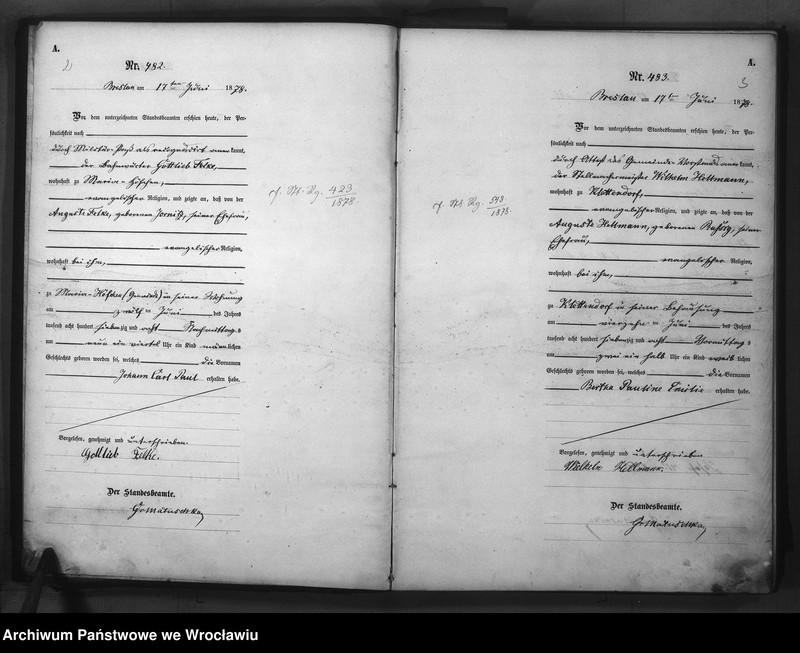 A.
2
Nr. 482.
Breslau am 17ten Juni 1878.
Vor dem unterzeichneten Standesbeamten erschien heute, der Per-
sönlichkeit nach
durch Militär-Paß als rekognoscirt anerkannt,
der Bahnwärter Gottlieb Felke,
wohnhaft zu Maria-Höfchen,
evangelischer Religion, und zeigte an, daß von der
Auguste Felke, geborenen seiner Ehefrau,
evangelischer Religion,
wohnhaft bei ihm,
zu Maria-Höfchen (Gemeinde) in seiner Wohnung
am zwölften Juni des Jahres
tausend acht hundert siebenzig und acht Nachmittags
um neun ein viertel Uhr ein Kind männlichen
Geschlechts geboren worden sei, welches die Vornamen
Johann Carl Paul erhalten habe.
Vorgelesen, genehmigt und unterschrieben
Gottlieb Felke.
Der Standesbeamte.
cf. St. Rg. 423
1878
A.
3
Nr. 483.
Breslau am 17ten Juni 1878.
Vor dem unterzeichneten Standesbeamten erschien heute, der Per-
sönlichkeit nach
durch Attest des Gemeinde-Vorstands anerkannt,
der Stellmachermeister Wilhelm Hellmann,
wohnhaft zu Klettendorf,
evangelischer Religion, und zeigte an, daß von der
Auguste Hellmann, geborenen seiner
Ehefrau,
evangelischer Religion,
wohnhaft bei ihm,
zu Klettendorf in seiner Behausung
am vierzehnten Juni des Jahres
tausend acht hundert siebenzig und acht Vormittags
um zwei ein halb Uhr ein Kind weiblichen
Geschlechts geboren worden sei, welches die Vornamen
Bertha Pauline Emilie erhalten habe.
Vorgelesen, genehmigt und unterschrieben
Wilhelm Hellmann.
Der Standesbeamte.
cf. St. Rg. 593
1878.
Archiwum Państwowe we Wrocławiu